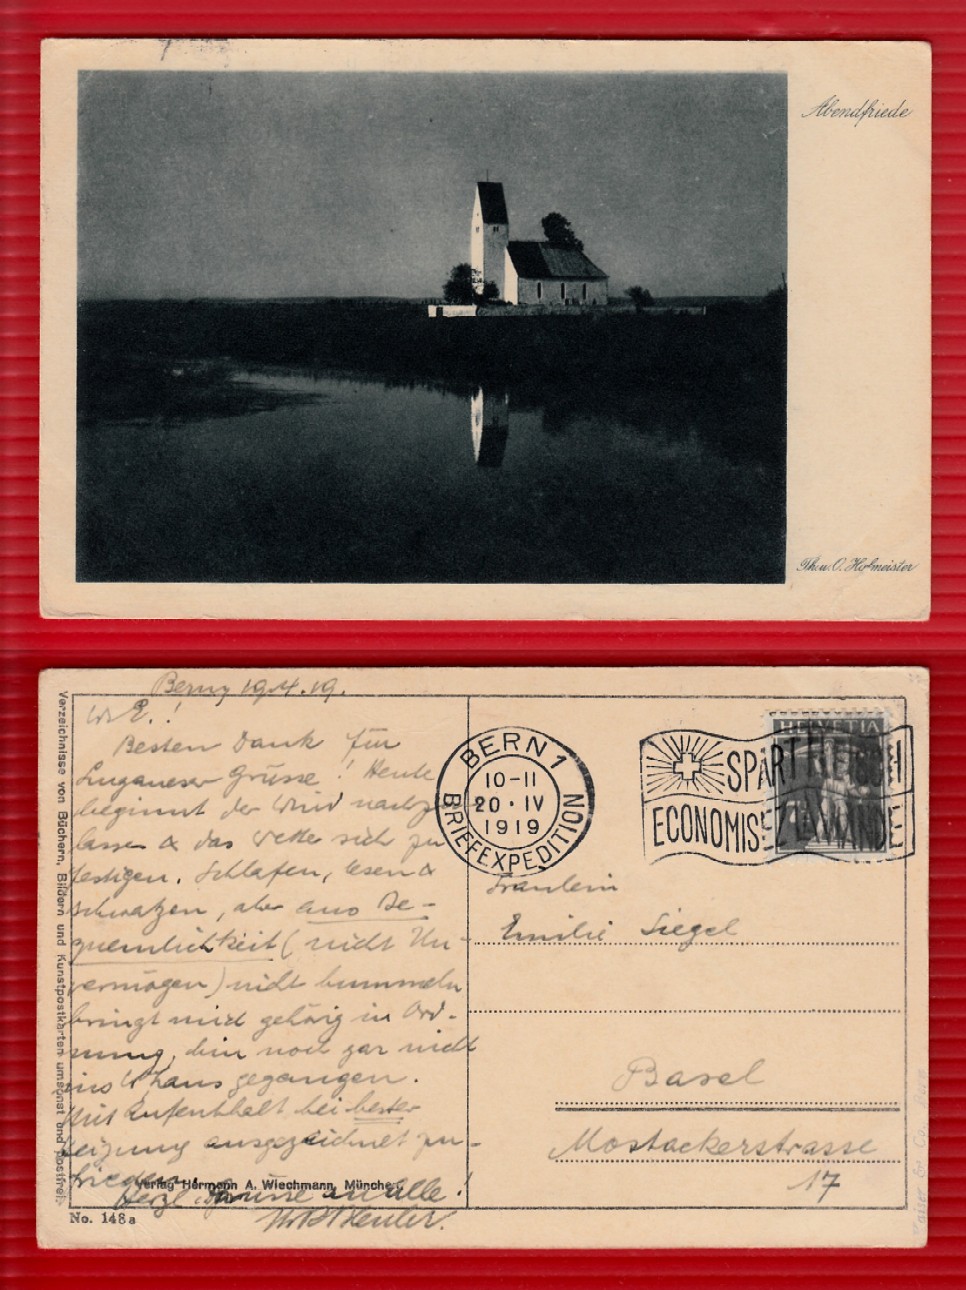 Abendfriede
Th. u. O. Hofmeister
Bern, 19.4.19.
E.!
Besten Dank für
Luganeser Grüsse! Heute
beginnt der Wind nachzu
lassen & das Wetter sich zu
festigen. Schlafen, lesen &
schwatzen, aber aus Be-
quemlichkeit (nicht Un-
vermögen) nicht bummeln
bringt mich gehörig in Ord-
nung, bin noch gar nicht
ins gegangen.
Mit Aufenthalt bei bester
Heizung ausgezeichnet zu-
frieden.
Herzl. Grüsse an alle!
Verlag Hermann A. Wiechmann, München
No. 148a
Verzeichnisse von Büchern, Bildern und Kunstpostkarten umsonst und postfrei.
BERN 1
10-11
20·IV
1919
BRIEFEXPEDITION
HELVETIA
SPART
ECONOMISEZ LA VIANDE
Fräulein
Emilie Siegel
Basel
Mostackerstrasse
17